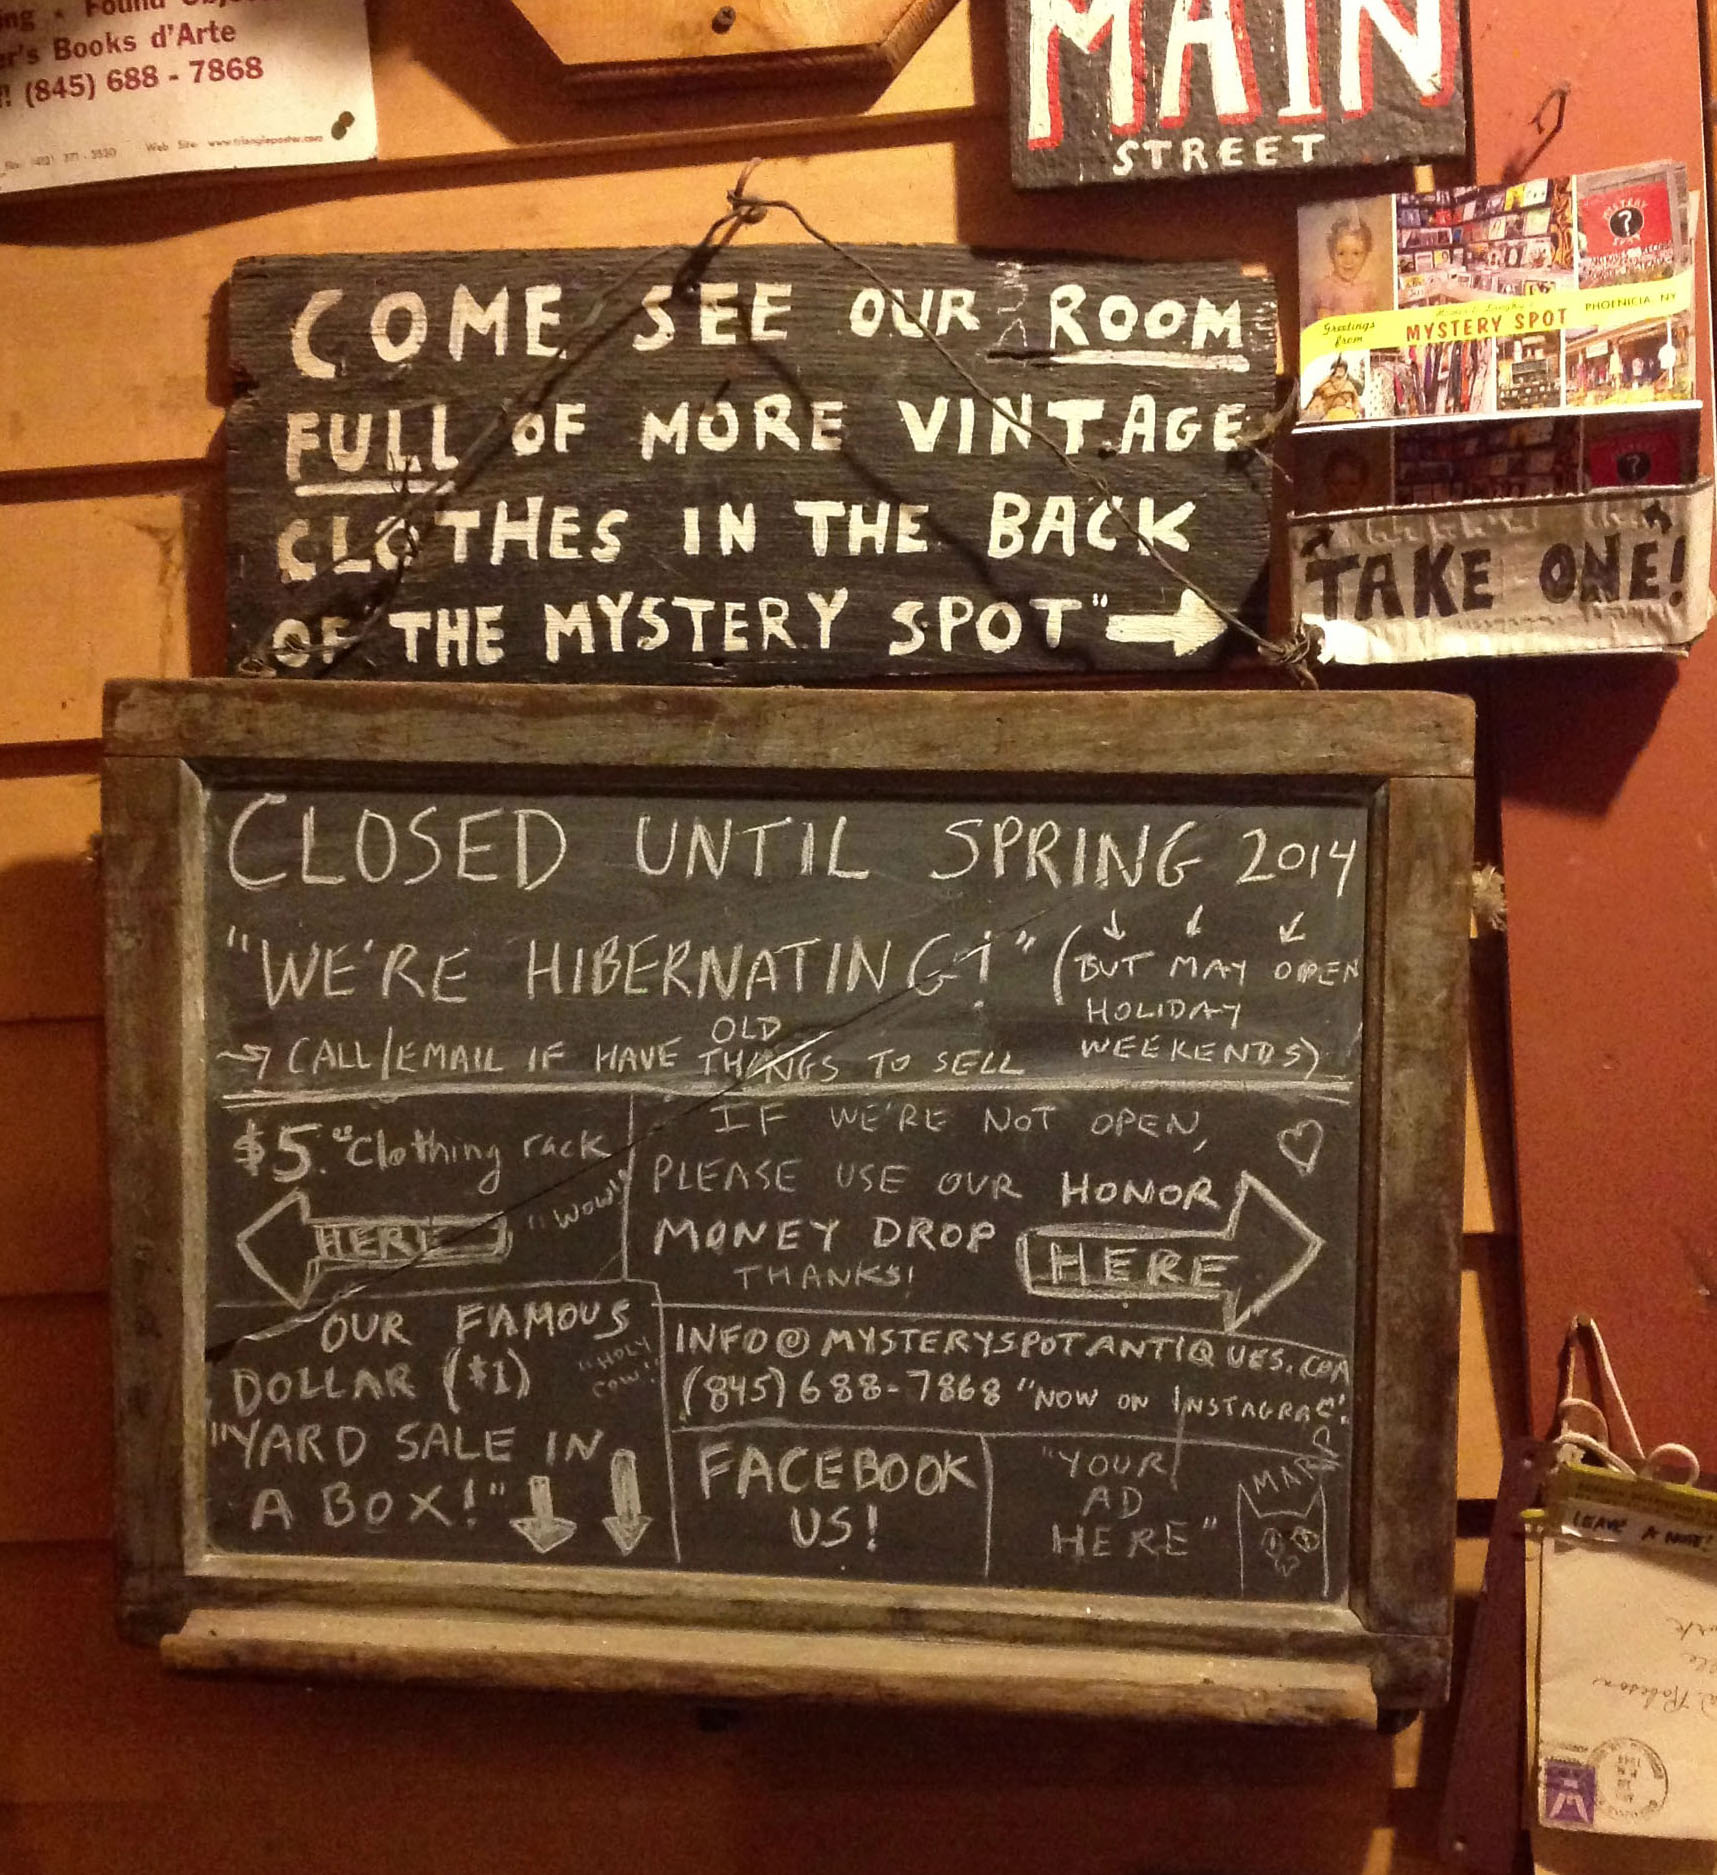 Found
r's Books d'Arte
(845) 688 - 7868
Web Site: www.triangleposter.com
MAIN
STREET
COME SEE OUR ROOM
FULL OF MORE VINTAGE
CLOTHES IN THE BACK
OF THE MYSTERY SPOT"
MYSTERY
?
SPOT
Greetings
from
MYSTERY SPOT
PHOENICIA, NY
TAKE ONE!
CLOSED UNTIL SPRING 2014
"WE'RE HIBERNATING!" (BUT MAY OPEN
HOLIDAY
WEEKENDS)
OLD
CALL/EMAIL IF HAVE THINGS TO SELL
$5. "Clothing rack
HERE "WOW!"
IF WE'RE NOT OPEN,
PLEASE USE OUR HONOR
MONEY DROP HERE
THANKS!
OUR FAMOUS
DOLLAR ($1) "HOLY
COW!"
"YARD SALE IN
A BOX!"
INFO@MYSTERYSPOTANTIQUES.COM
(845) 688-7868 "NOW ON INSTAGRAM!
FACEBOOK
US!
"YOUR
AD
HERE"
LEAVE A NOTE!